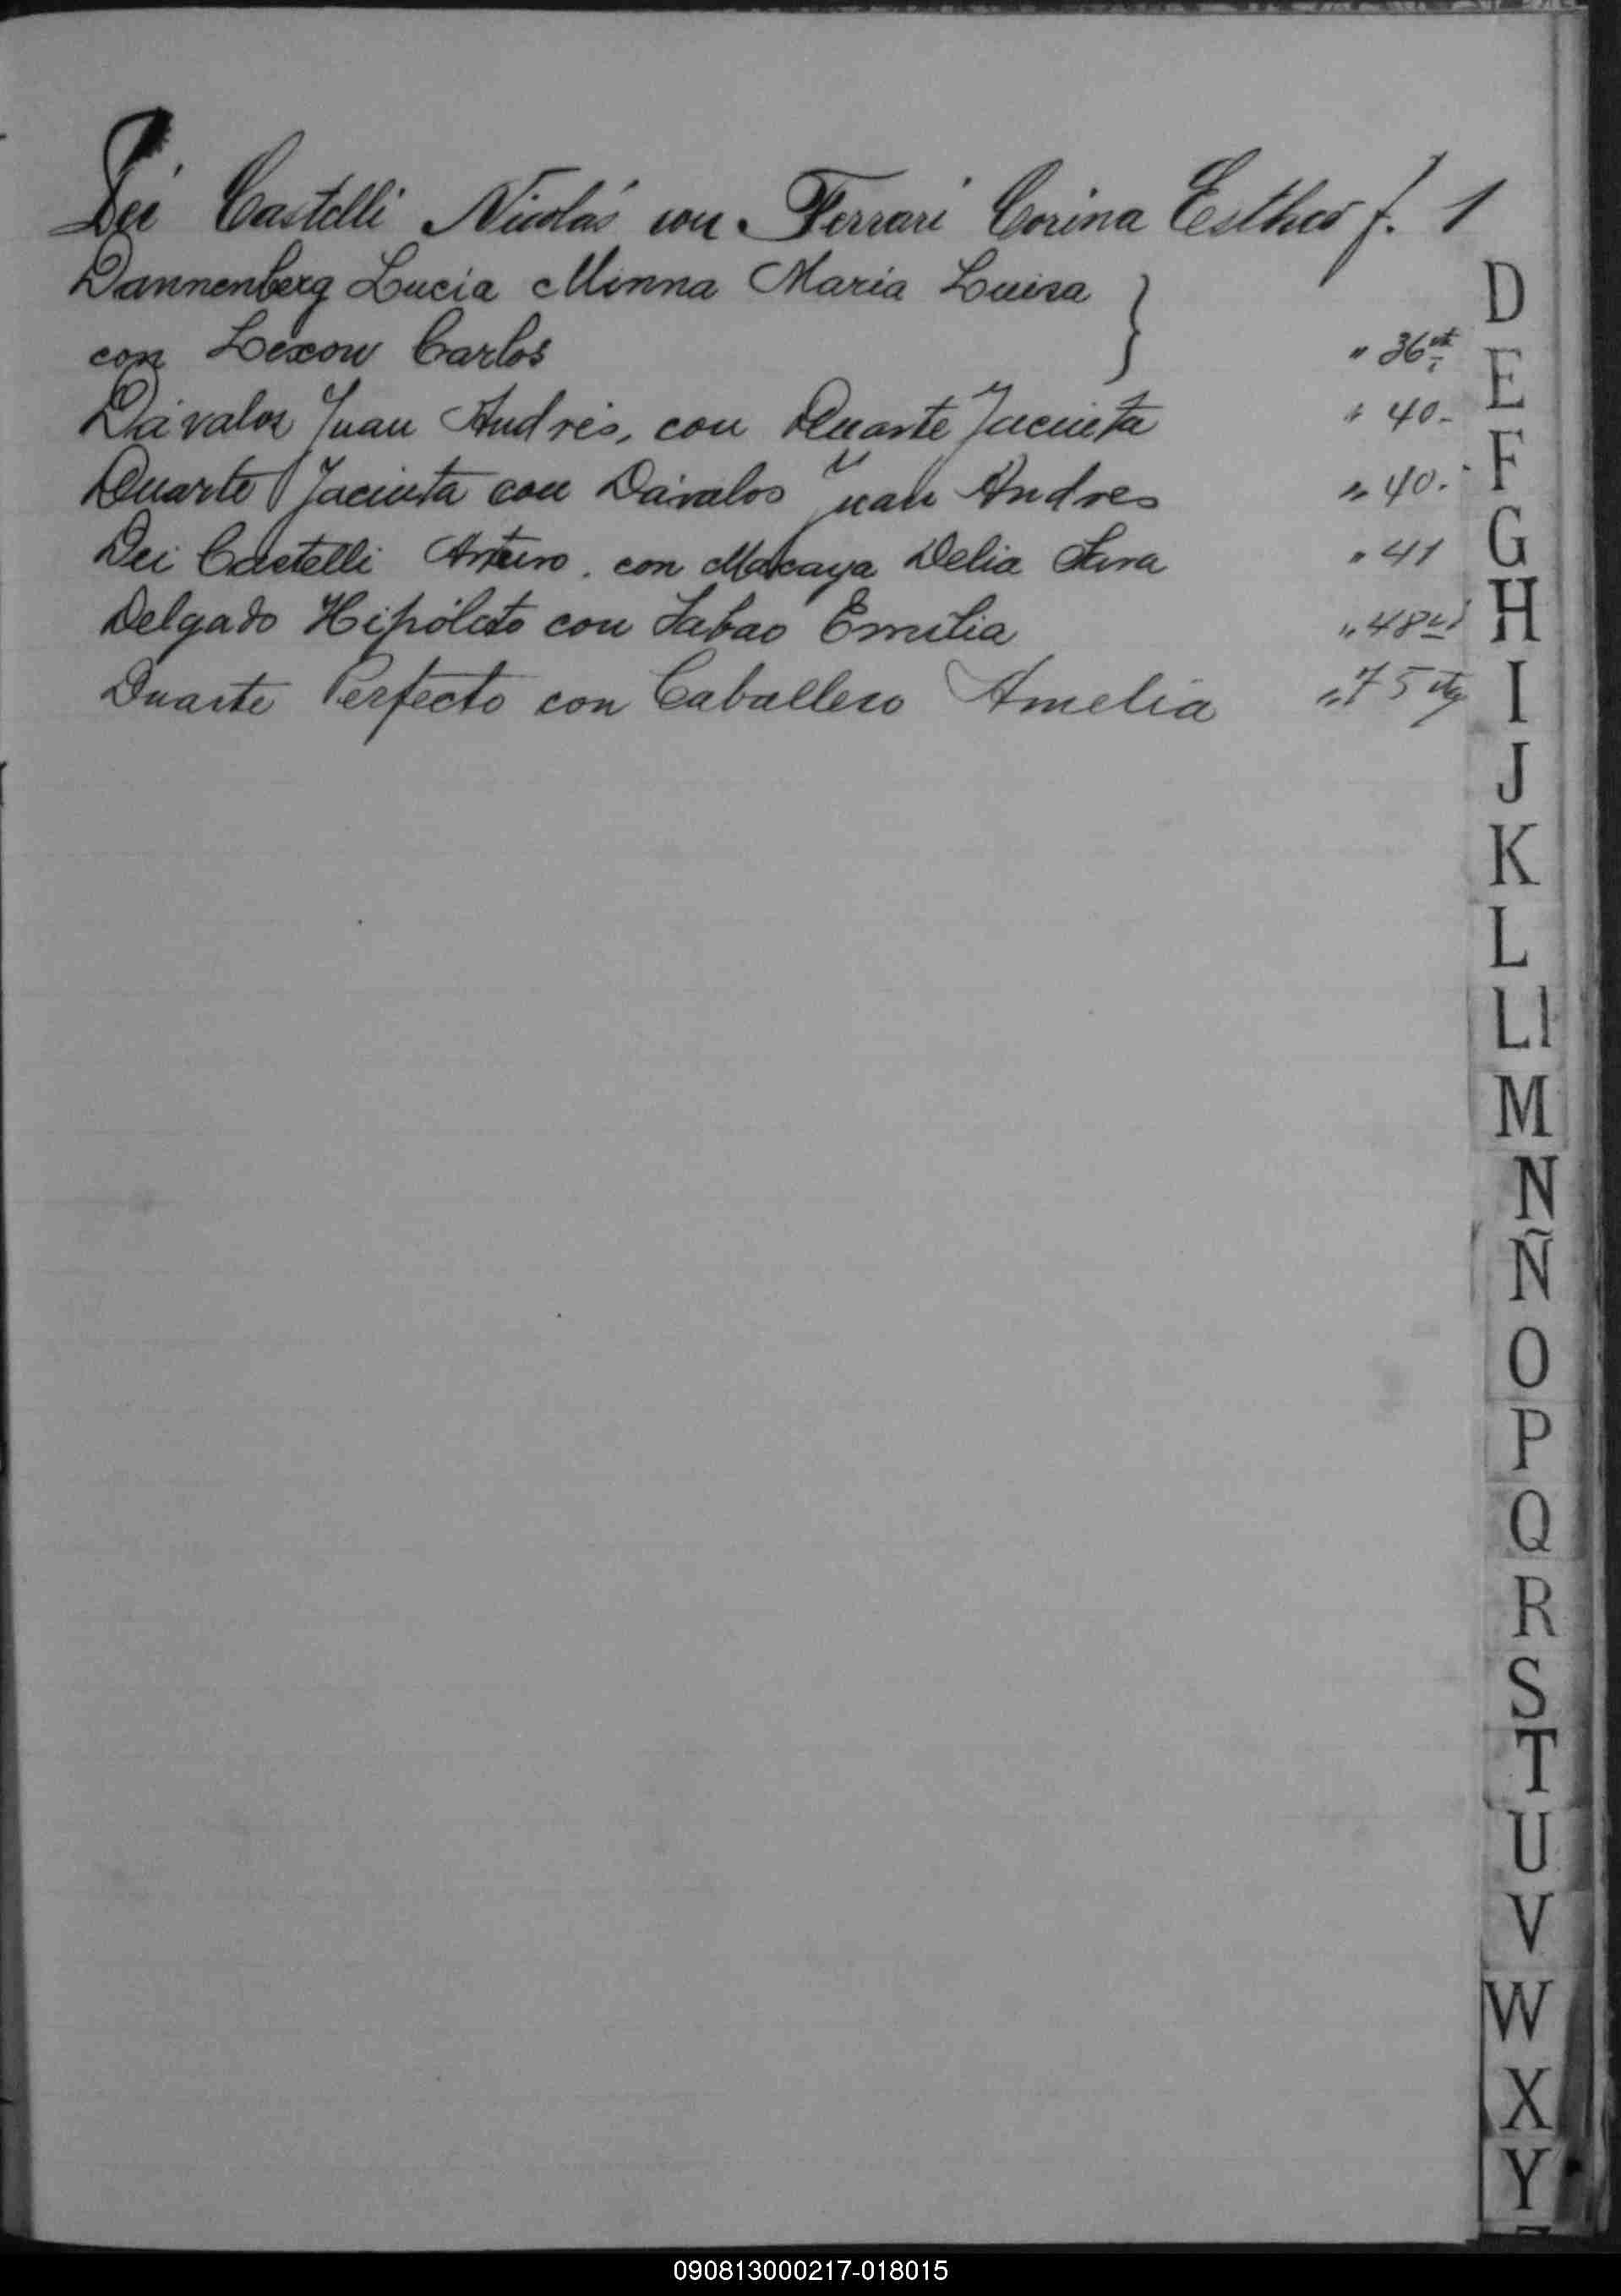 Dei Castelli Nicolás con Ferrari Corina Esther f. 1
Dannenberg Lucia Minna Maria Luisa
con Lexow Carlos } " 36 vta
Dávalos Juan Andrés, con Duarte Jacinta " 40.
Duarte Jacinta con Dávalos Juan Andres " 40.
Dei Castelli Arturo. con Macaya Delia Sara " 41
Delgado Hipólito con Emilia " 48
Duarte Perfecto con Caballero Amelia " 75 vta
D
E
F
G
H
I
J
K
L
Ll
M
N
Ñ
O
P
Q
R
S
T
U
V
W
X
Y
090813000217-018015